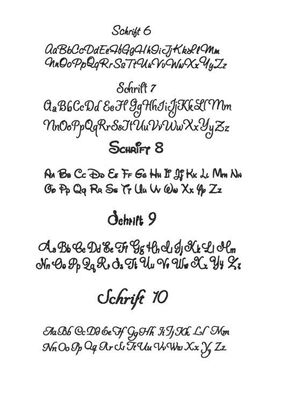 Schrift 6
AaBbCcDdEeFfGgHhIiJjKkLlMm
NnOoPpQqRrSsTtUuVvWwXxYyZz
Schrift 7
AaBbCcDdEeFfGgHhIiJjKkLlMm
NnOoPpQqRrSsTtUuVvWwXxYyZz
Schrift 8
Aa Bb Cc Dd Ee Ff Gg Hh Ii Jj Kk Ll Mm Nn
Oo Pp Qq Rr Ss Tt Uu Vv Ww Xx Yy Zz
Schrift 9
Aa Bb Cc Dd Ee Ff Gg Hh Ii Jj Kk Ll Mm
Nn Oo Pp Qq Rr Ss Tt Uu Vv Ww Xx Yy Zz
Schrift 10
Aa Bb Cc Dd Ee Ff Gg Hh Ii Jj Kk Ll Mm
Nn Oo Pp Qq Rr Ss Tt Uu Vv Ww Xx Yy Zz